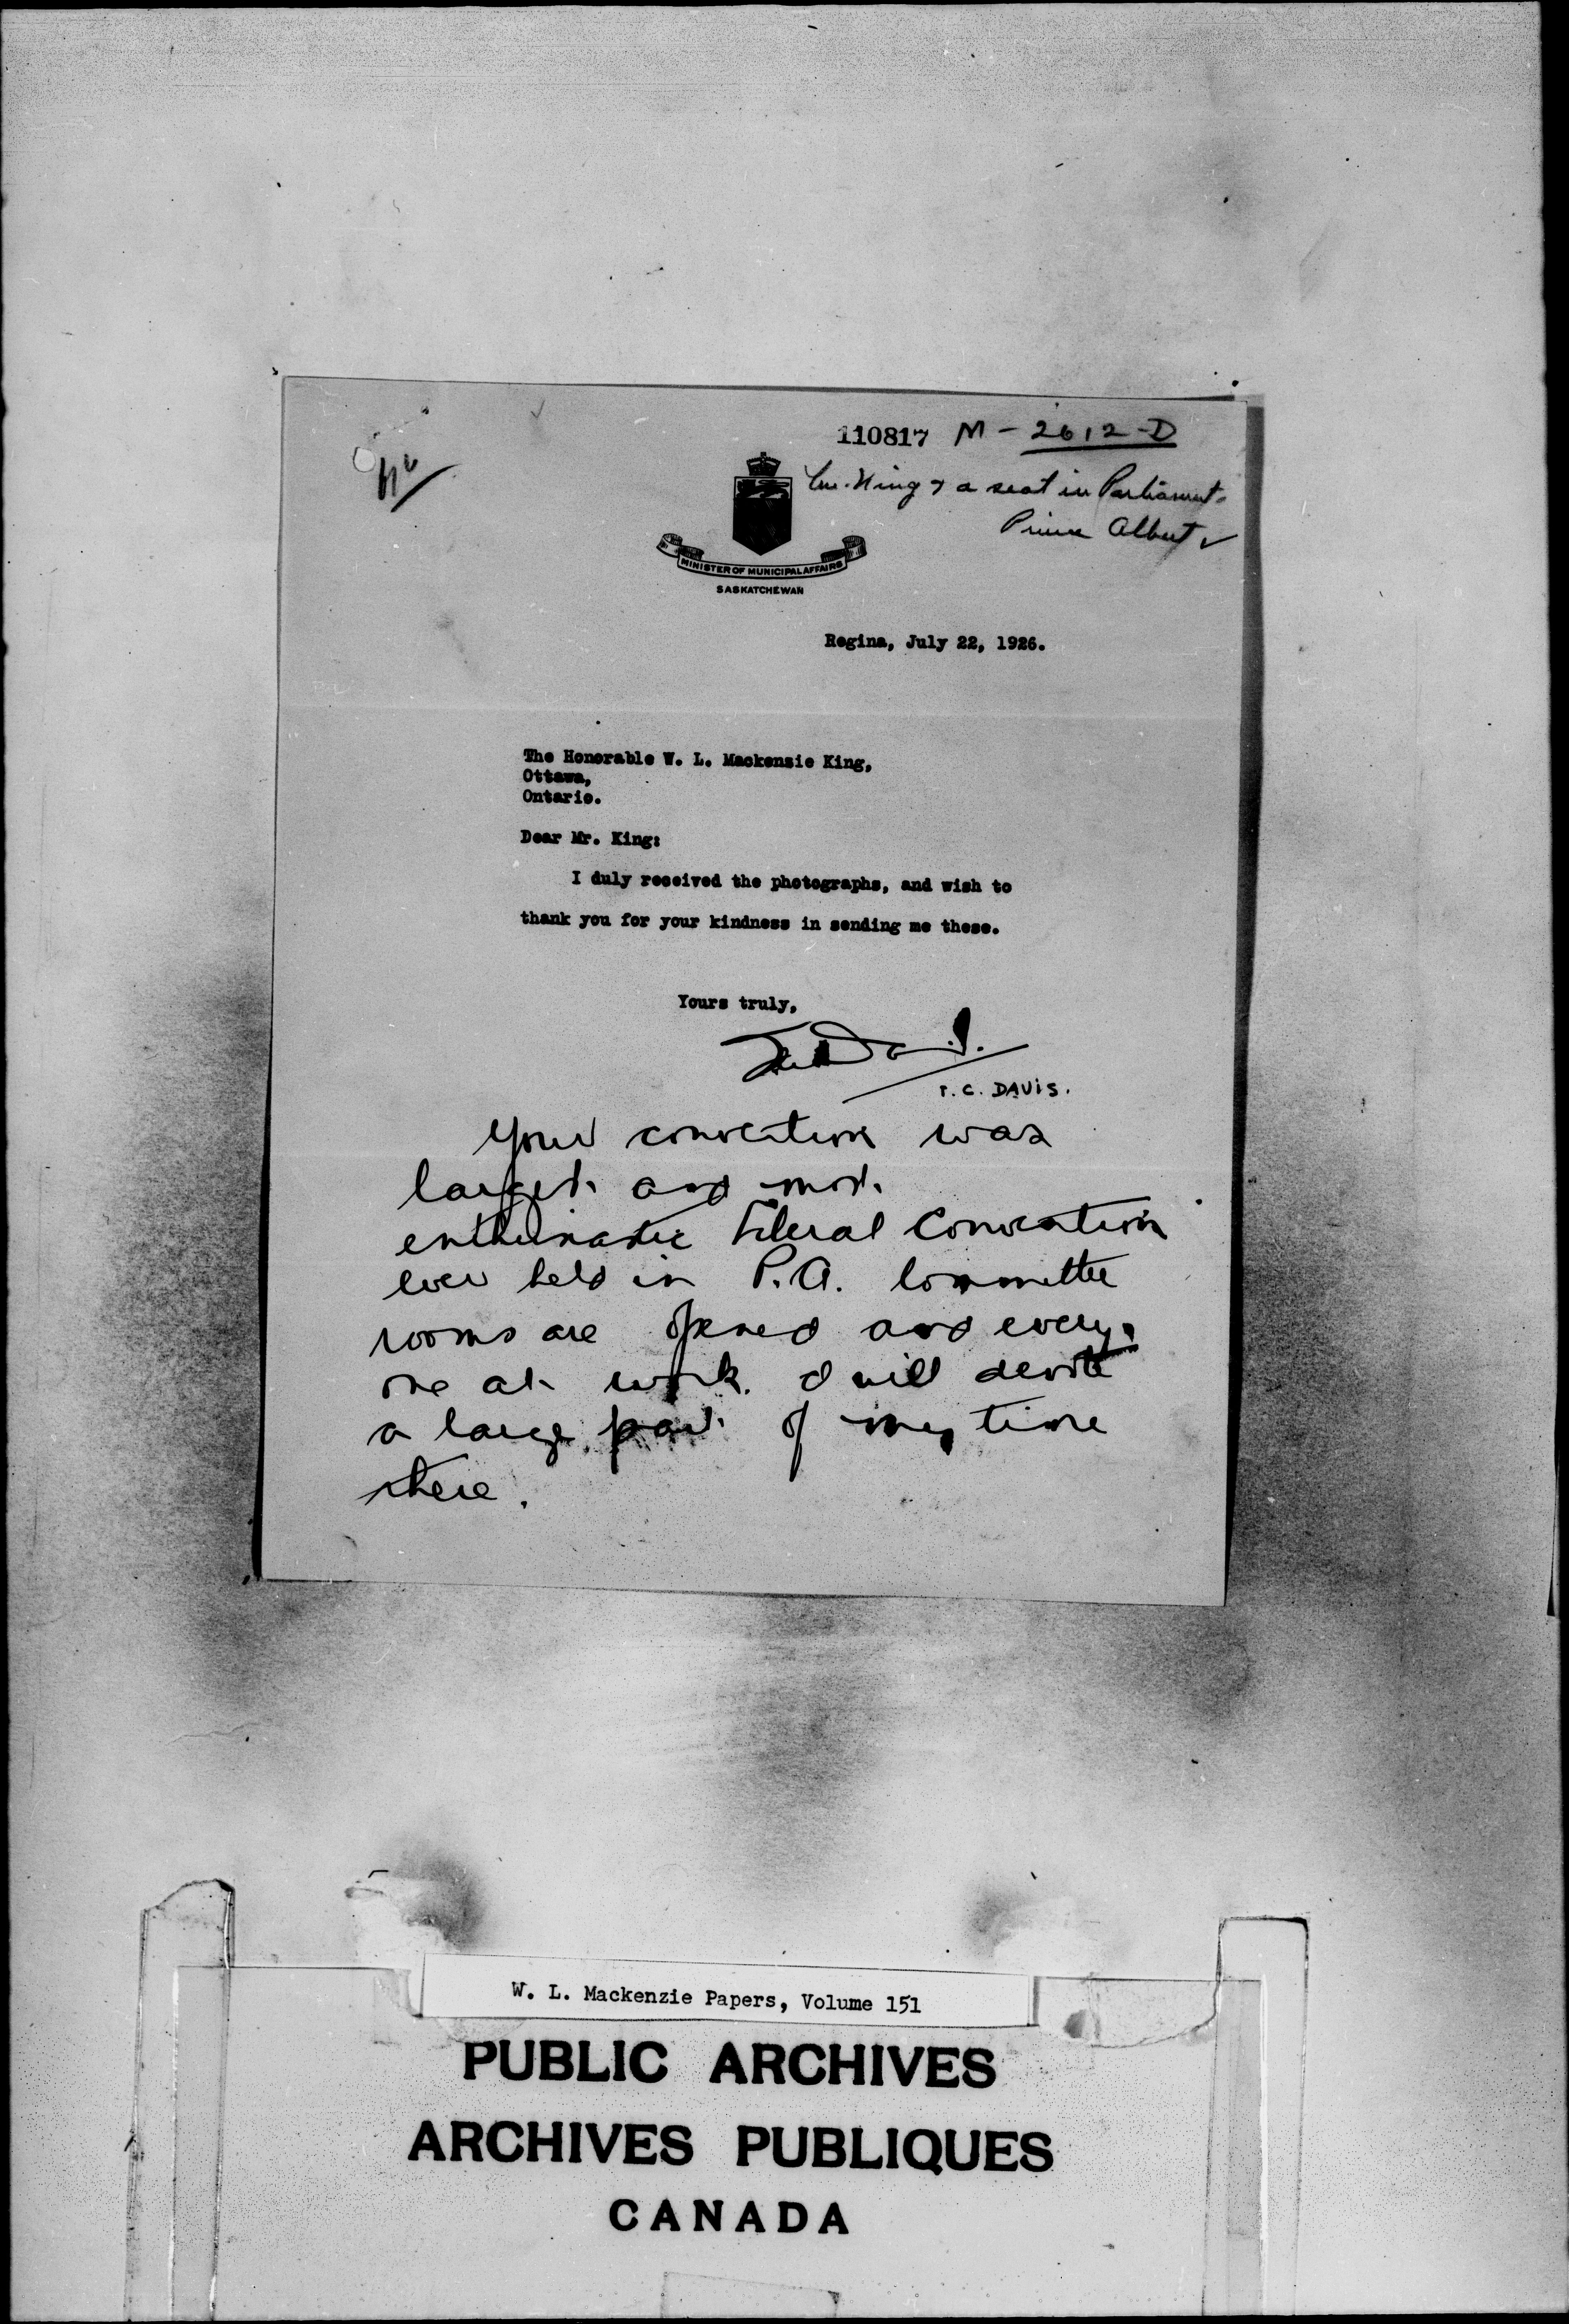 110817 M-2612-D
King & a seat in Parliament-
Prince Albert
MINISTER OF MUNICIPAL AFFAIRS
SASKATCHEWAN
Regina, July 22, 1926.
The Honorable W. L. Mackenzie King,
Ottawa,
Ontario.
Dear Mr. King:
I duly received the photographs, and wish to
thank you for your kindness in sending me these.
Yours truly,
T.C. Davis
T. C. DAVIS.
Your convention was
largest and most
enthusiastic Liberal Convention
ever held in P.A. Committee
rooms are opened and every
one at work. I will devote
a large part of my time
there.
W. L. Mackenzie Papers, Volume 151
PUBLIC ARCHIVES
ARCHIVES PUBLIQUES
CANADA